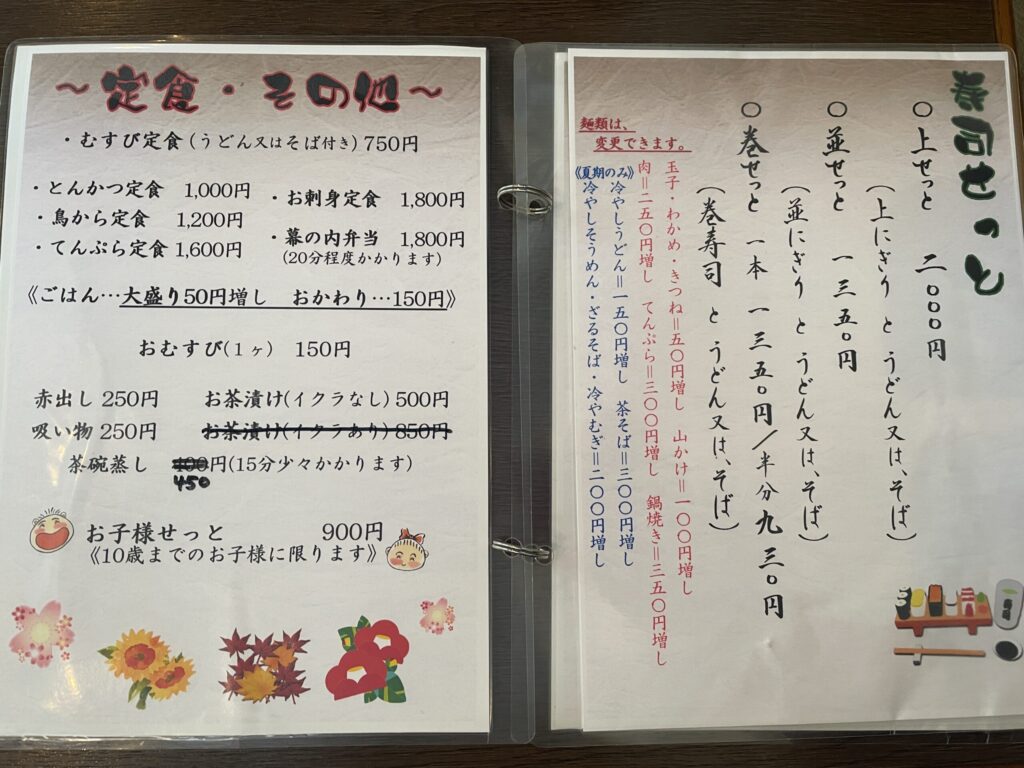 ～定食・その他～
・むすび定食（うどん又はそば付き）750円
・とんかつ定食　1,000円
・鳥から定食　1,200円
・てんぷら定食　1,600円
・お刺身定食　1,800円
・幕の内弁当　1,800円
（20分程度かかります）
《ごはん…大盛り50円増し　おかわり…150円》
おむすび（1ヶ）　150円
赤出し 250円　お茶漬け（イクラなし）500円
吸い物 250円　お茶漬け（イクラあり）850円
茶碗蒸し　400円（15分少々かかります）
450
お子様せっと　900円
《10歳までのお子様に限ります》
寿司せっと
〇上せっと　二〇〇〇円
（上にぎり と うどん又は、そば）
〇並せっと　一三五〇円
（並にぎり と うどん又は、そば）
〇巻せっと　一本　一三五〇円／半分九三〇円
（巻寿司 と うどん又は、そば）
麺類は、
変更できます。
玉子・わかめ・きつね＝五〇円増し　山かけ＝一〇〇円増し
肉＝二五〇円増し　てんぷら＝三〇〇円増し　鍋焼き＝三五〇円増し
《夏期のみ》
冷やしうどん＝一五〇円増し　茶そば＝三〇〇円増し
冷やしそうめん・ざるそば・冷やむぎ＝二〇〇円増し